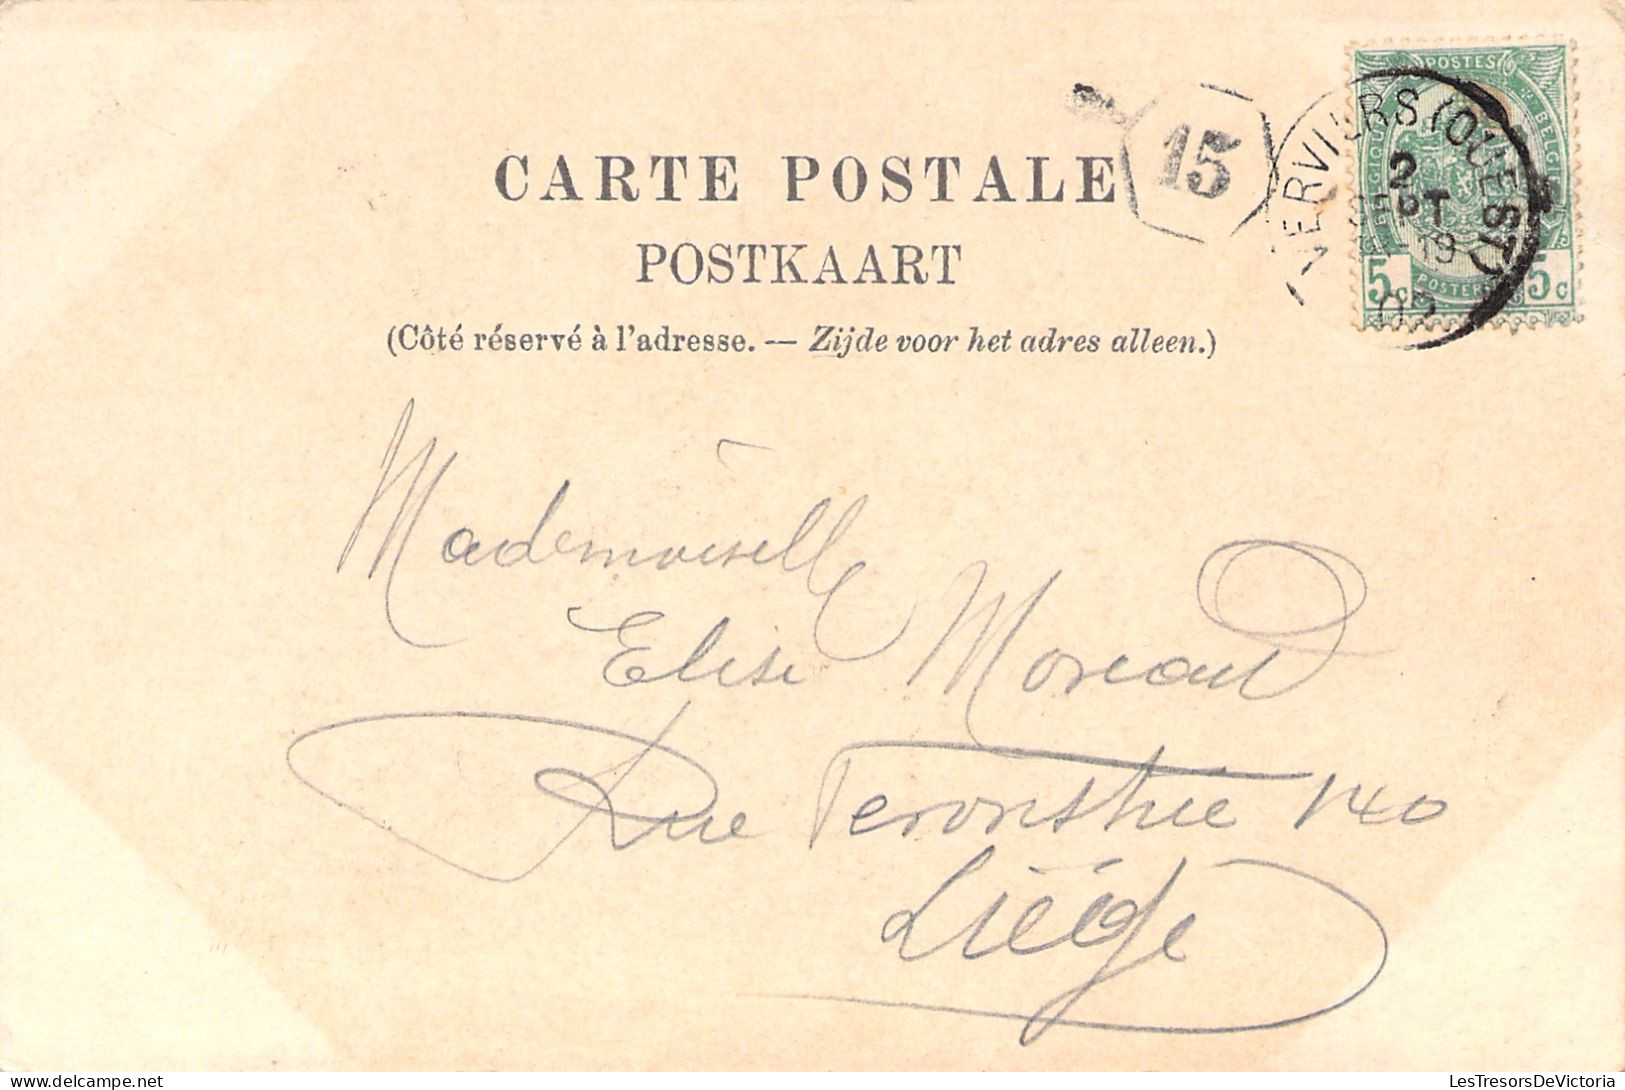 CARTE POSTALE
POSTKAART
(Côté réservé à l'adresse. — Zijde voor het adres alleen.)
15
VERVIERS (OUEST)
2
SEPT
19
02
POSTES
BELGIQUE
5c 5c
Mademoiselle
Elise Moreau
Rue 140
Liége
LesTresorsDeVictoria